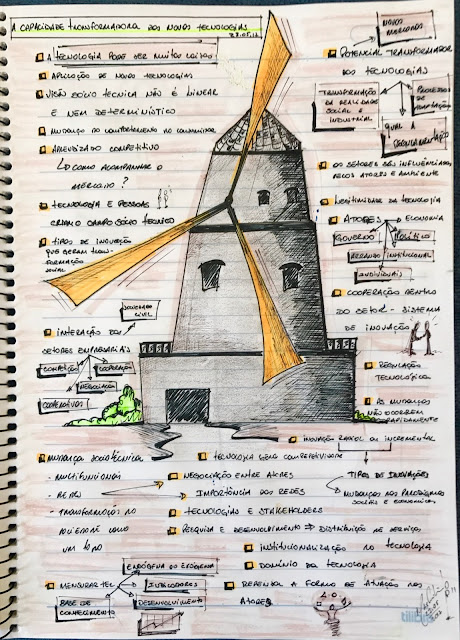 A CAPACIDADE TRANSFORMADORA DAS NOVAS TECNOLOGIAS
A TECNOLOGIA PODE SER MUITAS COISAS
APLICAÇÃO DE NOVAS TECNOLOGIAS
VISÃO SÓCIO TECNICA NÃO É LINEAR
E NEM DETERMINÍSTICO
MUDANÇA DO COMPORTAMENTO DO CONSUMIDOR
APRENDIZADO COMPETITIVO
COMO ACOMPANHAR O
MERCADO ?
TECNOLOGIA E PESSOAS
CRIAM O CAMPO SÓCIO TECNICO
TIPOS DE INOVAÇÃO
QUE GERAM TRANS-
FORMAÇÃO
SOCIAL
SOCIEDADE
CIVIL
INTERAÇÃO DOS
SETORES EMPRESARIAIS
COMPETIÇÃO
COOPERAÇÃO
NEGOCIAÇÃO
COOPERATIVAS
NOVOS
MERCADOS
POTENCIAL TRANSFORMADOR
DAS TECNOLOGIAS
TRANSFORMAÇÃO
DA REALIDADE
SOCIAL E
INDUSTRIAL
PROCESSO
DE
ADAPTAÇÃO
QUAL A
REGULAMENTAÇÃO
OS SETORES SÃO INFLUENCIADOS
PELOS ATORES E AMBIENTE
LEGITIMIDADE DA TECNOLOGIA
ATORES
ECONOMIA
GOVERNO
POLÍTICO
ARRANJO INSTITUCIONAL
INDIVIDUAIS
COOPERAÇÃO DENTRO
DO SETOR - SISTEMA
DE INOVAÇÃO
REGULAÇÃO
TECNOLÓGICA
AS MUDANÇAS
NÃO OCORREM
RAPIDAMENTE
INOVAÇÃO RADICAL OU INCREMENTAL
TECNOLOGIA GERA COMPETITIVIDADE
TIPOS DE INOVAÇÕES
MUDANÇAS NOS PARADIGMAS
SOCIAIS E ECONOMICOS
MUDANÇA SOCIOTÉCNICA
- MULTIFUNCIONAL
- TRANSFORMAÇÃO NA
SOCIEDADE COMO
UM TODO
NEGOCIAÇÃO ENTRE ATORES
IMPORTÂNCIA DAS REDES
TECNOLOGIAS E STAKEHOLDERS
PESQUISA E DESENVOLVIMENTO ⇒ DISTRIBUIÇÃO DE SERVIÇOS
INSTITUCIONALIZAÇÃO DA TECNOLOGIA
DOMÍNIO DA TECNOLOGIA
REPENSAR A FORMA DE ATUAÇÃO DOS
ATORES
ENDÓGENA OU EXÓGENA
MENSURAR TEC.
INDICADORES
BASE DE
CONHECIMENTO
DESENVOLVIMENTO
tilibra